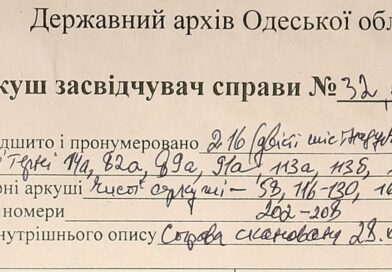 Державний архів Одеської обл
куш засвідчувач справи №32
дшито і пронумеровано 216 (двісті шістнадця
терні 14а, 82а, 89а, 91а, 113а, 113б, 1
рні аркуші Чисті аркуші – 59, 116-130, 16
номери 202-208
нутрішнього опису Справа сканована 28.